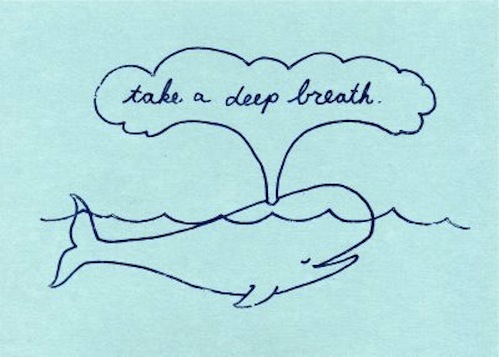 take a deep breath.